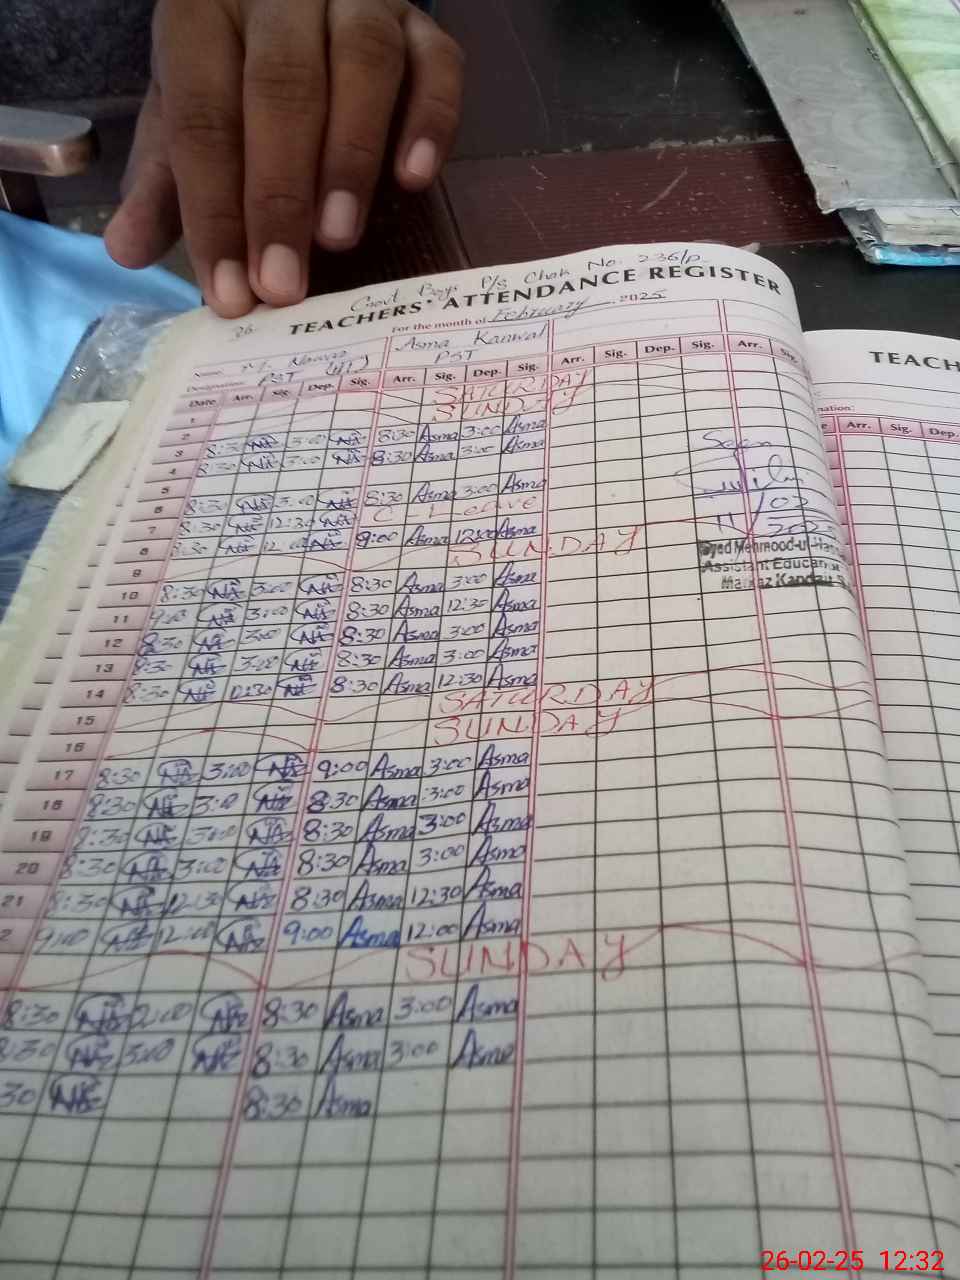 Govt Boys P/S Chak No. 236/P
26 TEACHERS' ATTENDANCE REGISTER
For the month of February 2025
Name: M. Nawaz Asma Kanwal
Designation: PST PST
Date Arr. Sig. Dep. Sig. Arr. Sig. Dep. Sig. Arr. Sig. Dep. Sig. Arr. Sig.
1 SATURDAY
2 SUNDAY
3 8:30 3:00 8:30 Asma 3:00 Asma
4 8:30 3:00 8:30 Asma 3:00 Asma
5
6 8:30 3:00 8:30 Asma 3:00 Asma
7 8:30 12:30 C-Leave
8 8:30 12:00 9:00 Asma 12:00 Asma
9 SUNDAY
10 8:30 3:00 8:30 Asma 3:00 Asma
11 3:00 8:30 Asma 12:30 Asma
12 8:30 3:00 8:30 Asma 3:00 Asma
13 8:30 3:00 8:30 Asma 3:00 Asma
14 8:30 12:30 8:30 Asma 12:30 Asma
15 SATURDAY
16 SUNDAY
17 8:30 3:00 9:00 Asma 3:00 Asma
18 8:30 3:00 8:30 Asma 3:00 Asma
19 8:30 3:00 8:30 Asma 3:00 Asma
20 8:30 3:00 8:30 Asma 3:00 Asma
21 8:30 12:30 8:30 Asma 12:30 Asma
2 9:00 12:00 9:00 Asma 12:00 Asma
SUNDAY
8:30 2:00 8:30 Asma 3:00 Asma
8:30 3:00 8:30 Asma 3:00 Asma
30 8:30 Asma
Seen
11/02
2025
Syed Mehmood-ul-Has
Assistant Education
Markaz Kandan
TEACH
Arr. Sig. Dep.
26-02-25 12:32